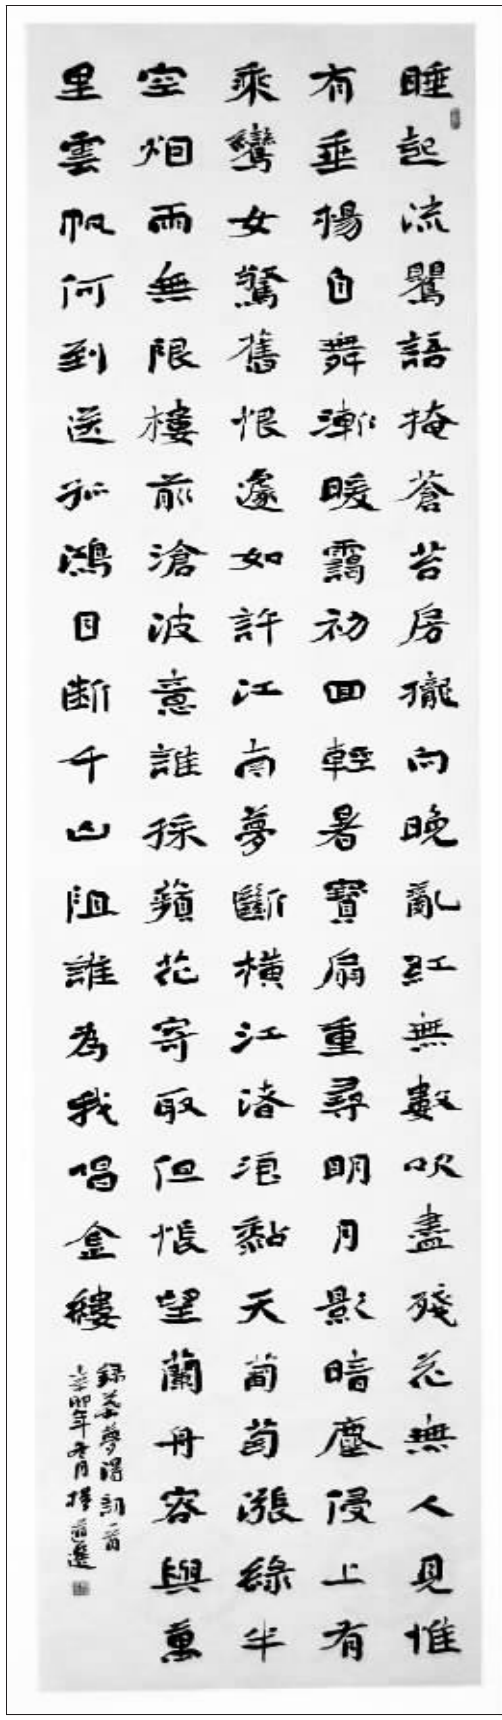 睡起流鸎語掩蒼苔房櫳向晚亂紅無數吹盡殘花無人見惟
有垂楊自舞漸暖靄初回輕暑寶扇重尋明月影暗塵侵上有
乘鸞女驚舊恨遽如許江南夢斷橫江渚浪黏天葡萄漲綠半
空烟雨無限樓前滄波意誰採蘋花寄取但悵望蘭舟容與萬
里雲帆何到送孤鴻目斷千山阻誰為我唱金縷
錄葉夢得詞一首
辛卯年月